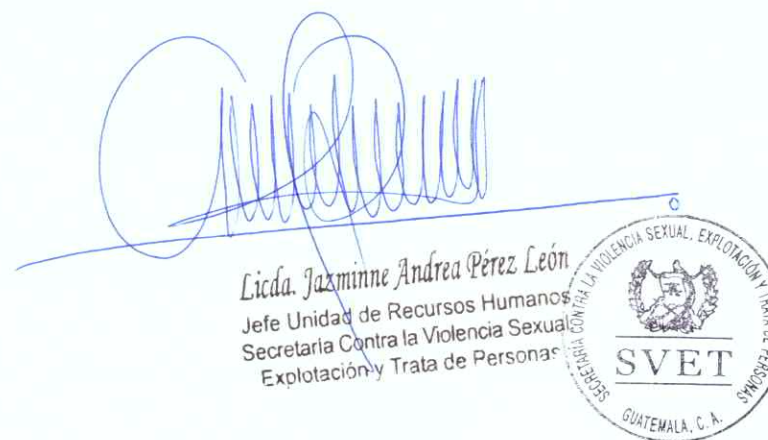 Licda. Jazminne Andrea Pérez León
Jefe Unidad de Recursos Humanos
Secretaria Contra la Violencia Sexual
Explotación y Trata de Personas
SECRETARÍA CONTRA LA VIOLENCIA SEXUAL, EXPLOTACIÓN Y TRATA DE PERSONAS
SVET
GUATEMALA, C. A.